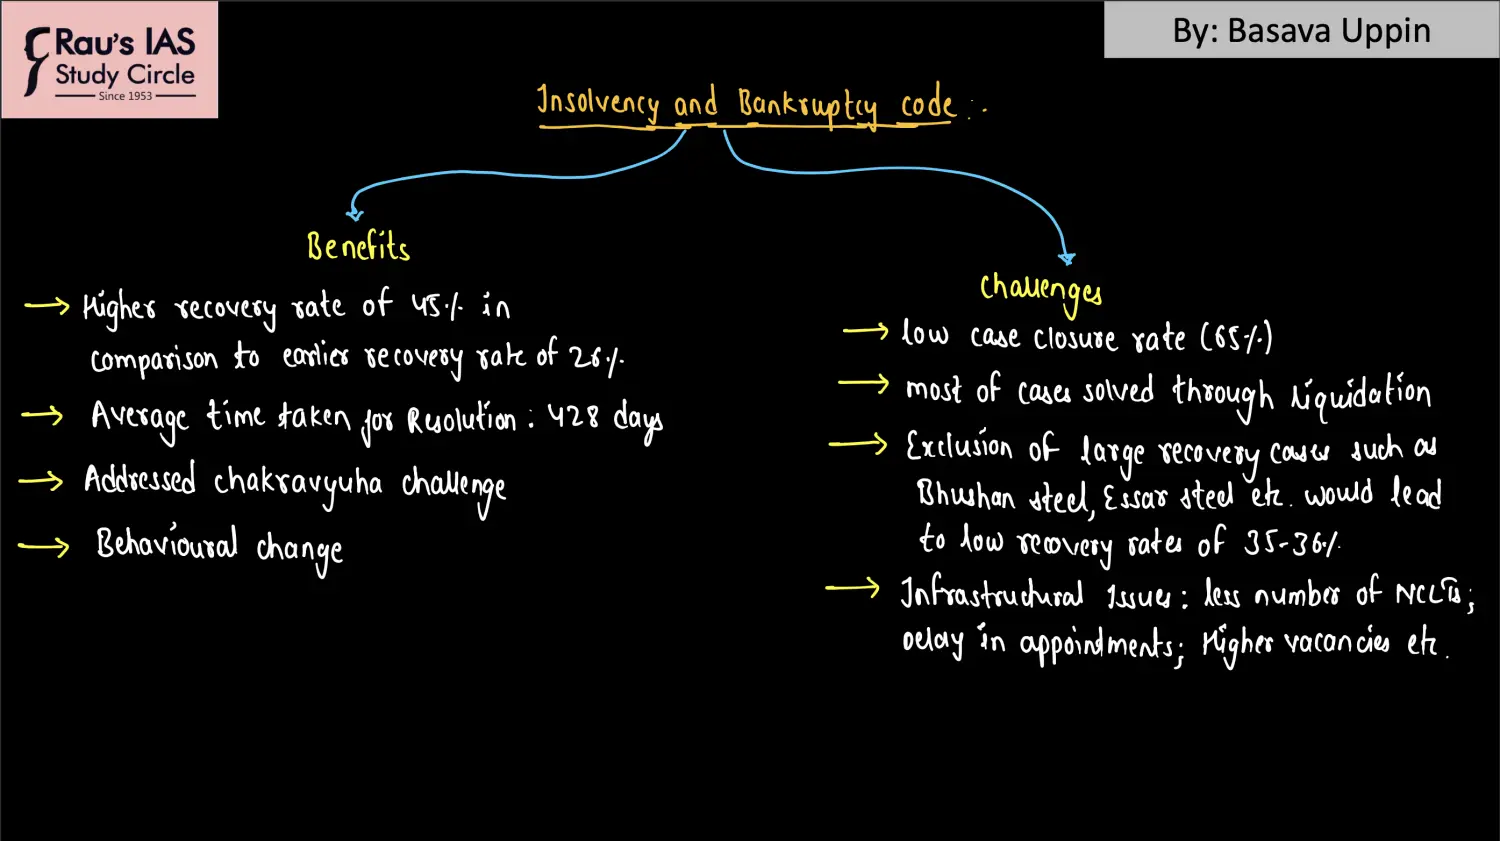 Rau's IAS
Study Circle
Since 1953
By: Basava Uppin
Insolvency and Bankruptcy code :-
Benefits
→ Higher recovery rate of 45% in
comparison to earlier recovery rate of 26%.
→ Average time taken for Resolution: 428 days
→ Addressed chakravyuha challenge
→ Behavioural change
Challenges
→ low case closure rate (65%)
→ most of cases solved through Liquidation
→ Exclusion of large recovery cases such as
Bhushan steel, Essar steel etc. would lead
to low recovery rates of 35-36%.
→ Infrastructural Issues: less number of NCLTs;
Delay in appointments; Higher vacancies etc.